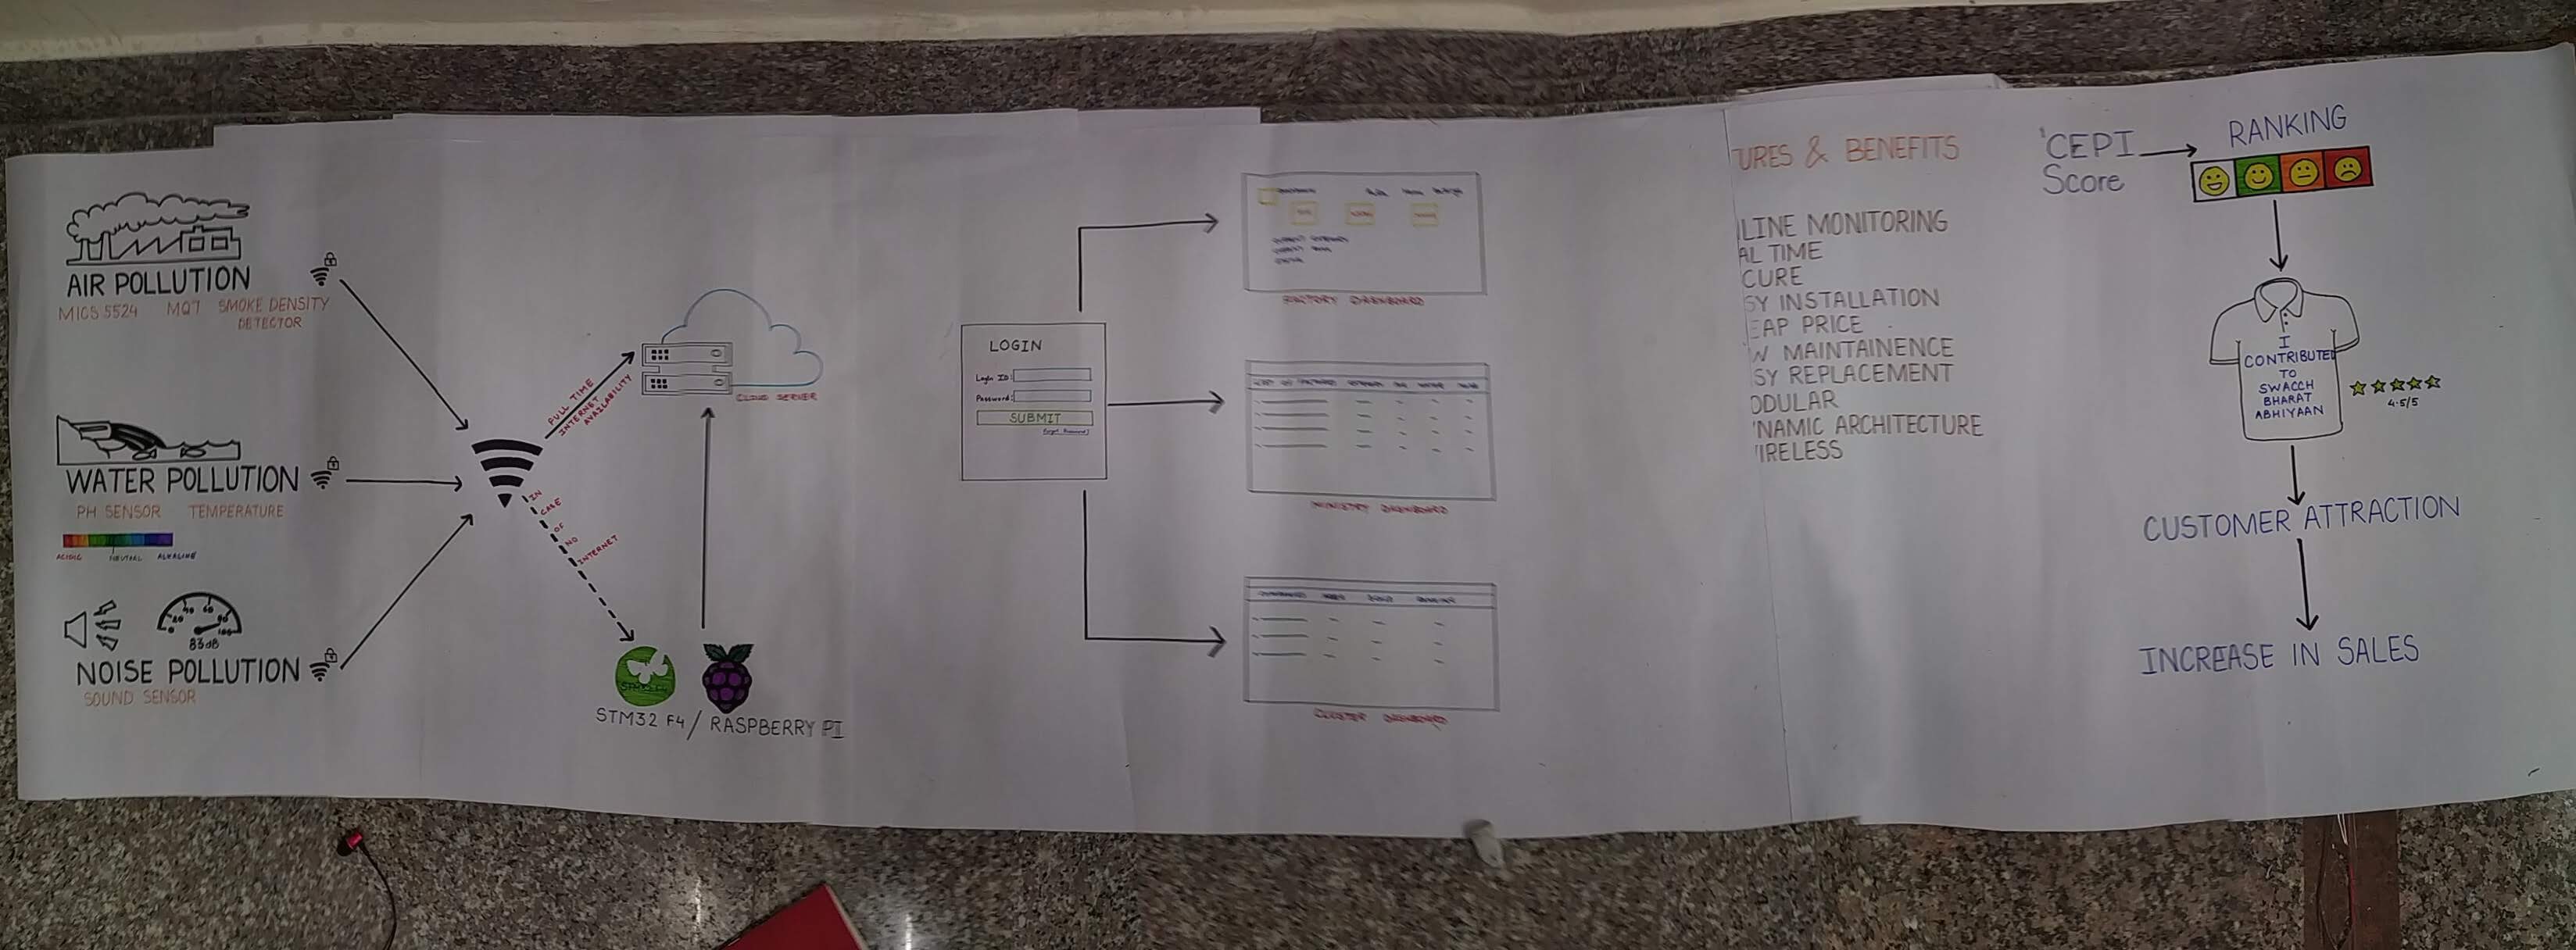 AIR POLLUTION
MICS 5524 MQ7 SMOKE DENSITY
DETECTOR
WATER POLLUTION
PH SENSOR TEMPERATURE
ACIDIC NEUTRAL ALKALINE
0 20 40 60 80 100
83dB
NOISE POLLUTION
SOUND SENSOR
FULL TIME
INTERNET
AVAILABILITY
IN
CASE
OF
NO
INTERNET
CLOUD SERVER
STM32 F4 / RASPBERRY PI
LOGIN
Login ID:
Password:
SUBMIT
Forgot Password?
FACTORY DASHBOARD
MINISTRY DASHBOARD
CLUSTER DASHBOARD
TURES & BENEFITS
LINE MONITORING
AL TIME
CURE
SY INSTALLATION
EAP PRICE
W MAINTAINENCE
SY REPLACEMENT
ODULAR
NAMIC ARCHITECTURE
IRELESS
'CEPI
Score
RANKING
I
CONTRIBUTED
TO
SWACCH
BHARAT
ABHIYAAN
4.5/5
CUSTOMER ATTRACTION
INCREASE IN SALES